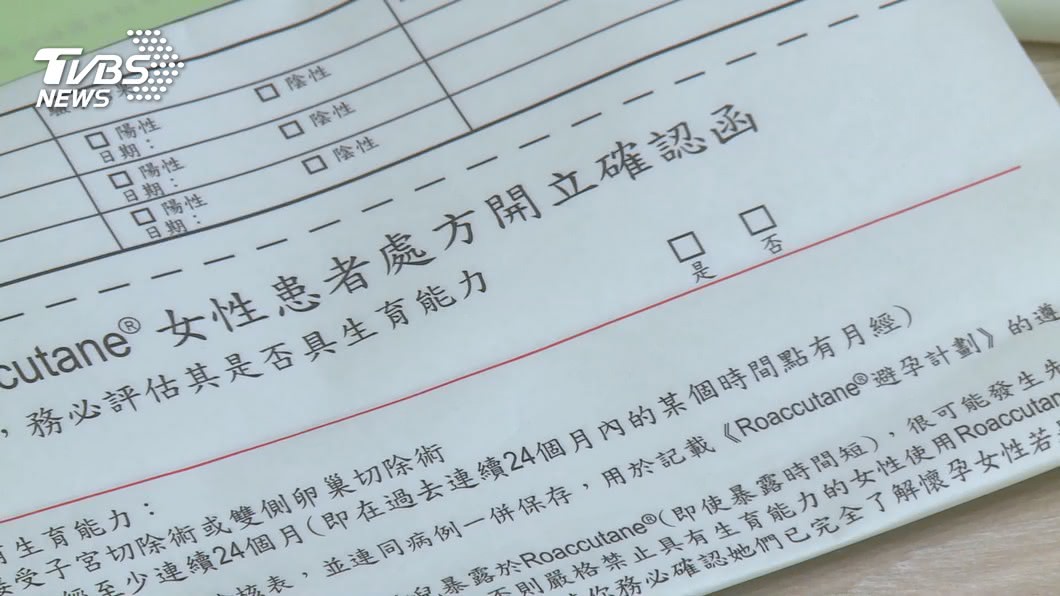 TVBS
NEWS
陰性
陽性
日期：
陰性
陽性
日期：
陰性
陽性
日期：
ccutane® 女性患者處方開立確認函
，務必評估其是否具生育能力
是 否
生育能力：
受子宮切除術或雙側卵巢切除術
經至少連續24個月(即在過去連續24個月內的某個時間點有月經)
核表，並連同病例一併保存，用於記載《Roaccutane®避孕計劃》的遵
兒暴露於Roaccutane®(即使暴露時間短)，很可能發生先
否則嚴格禁止具有生育能力的女性使用Roaccutane
你務必確認她們已完全了解懷孕女性若